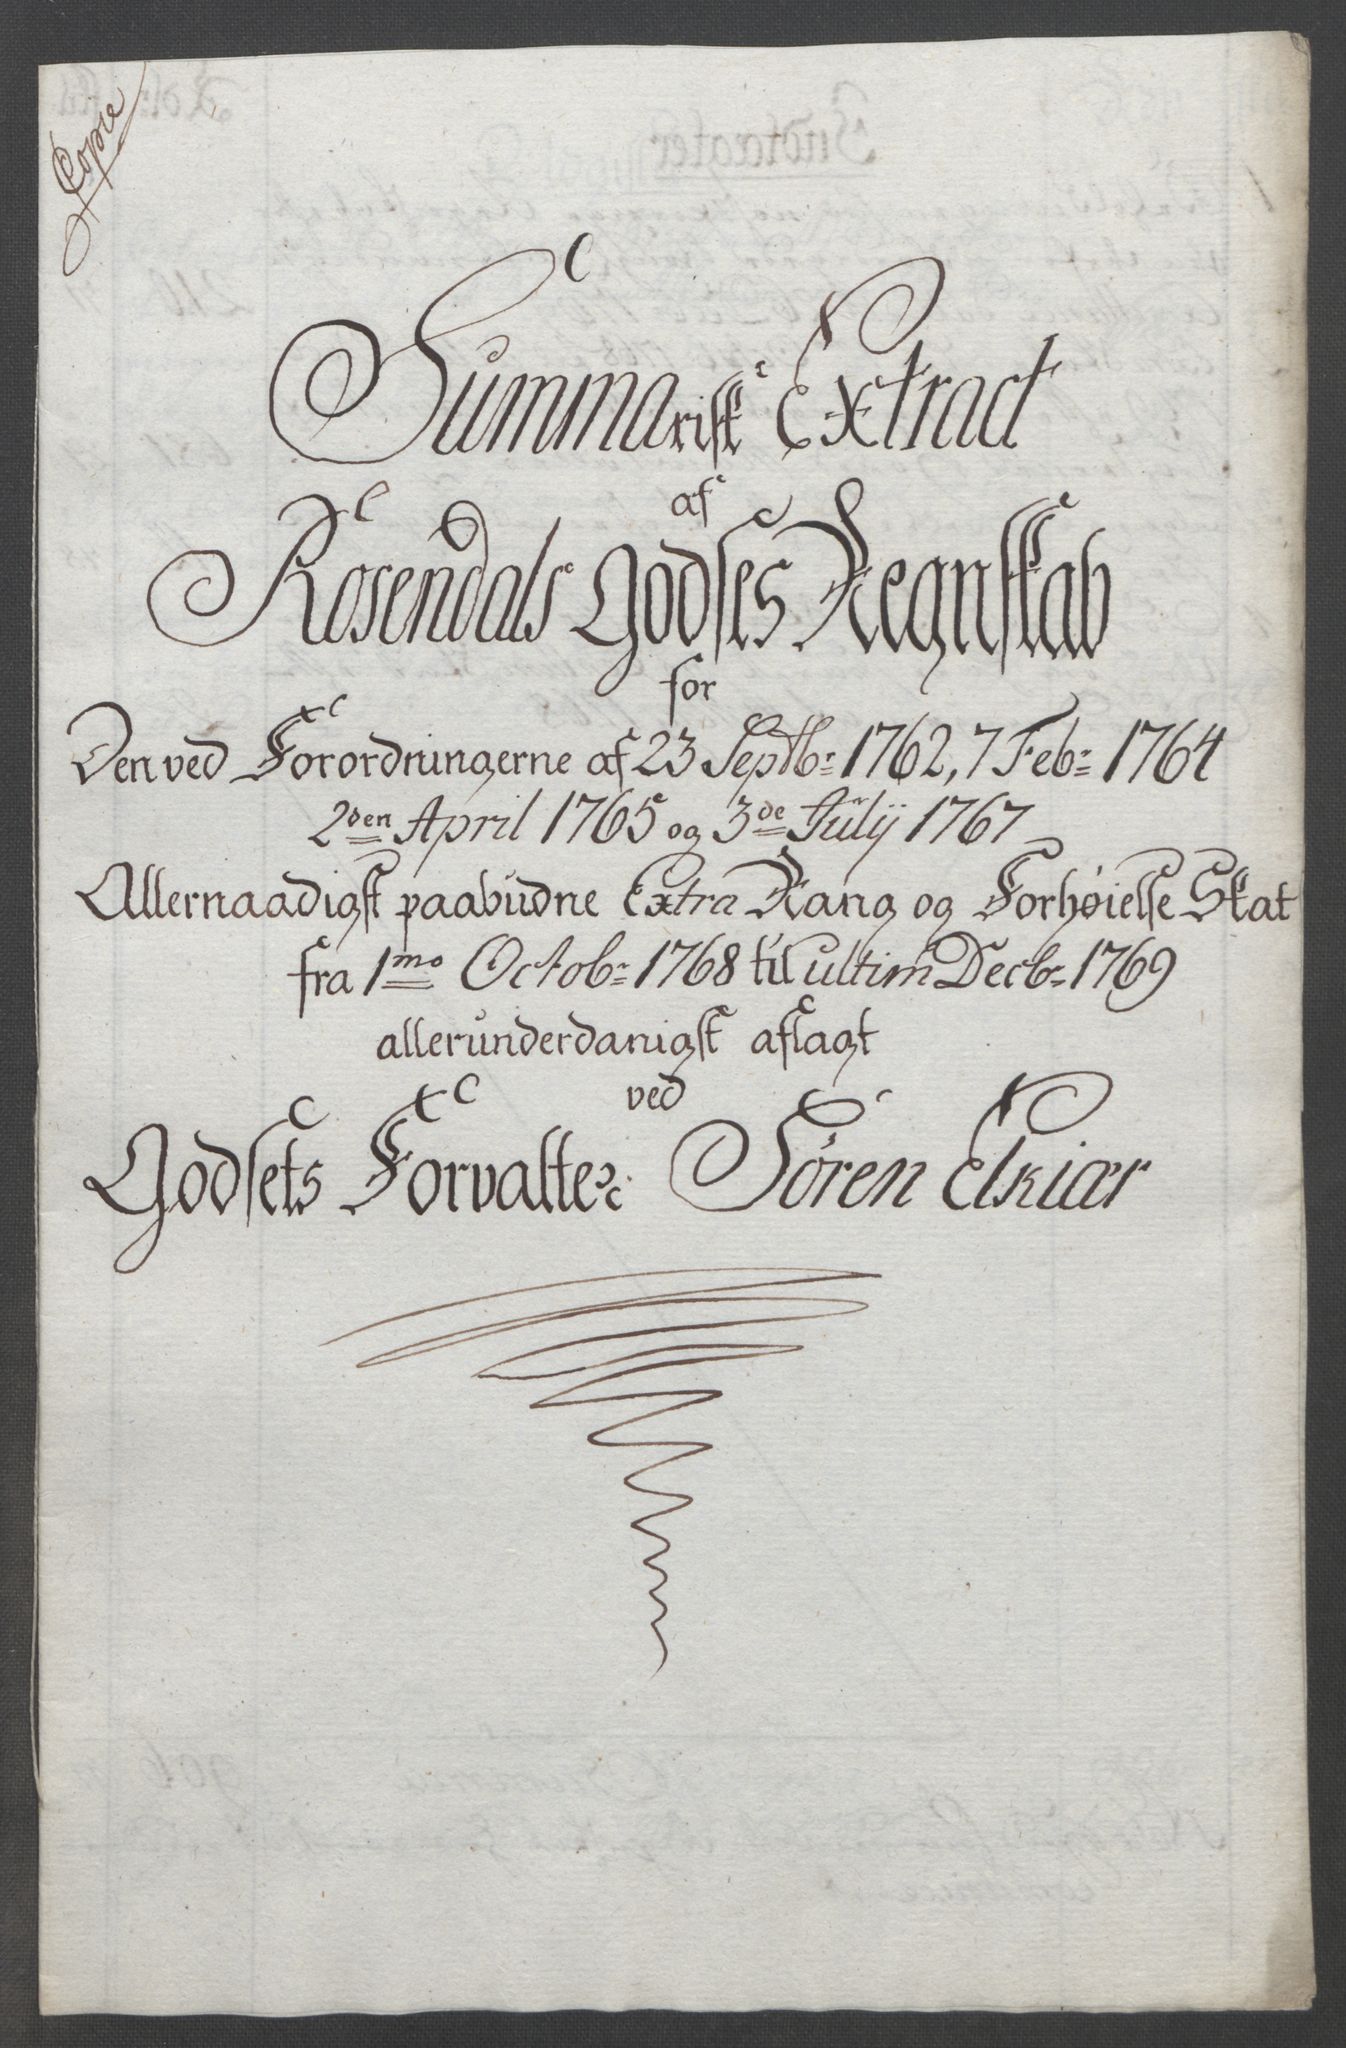 Copie
Summarisk Extract
af
Rosendals Godses Regnskab
for
Den ved Forordningerne af 23 Septbr: 1762, 7 Febr: 1764
2den April 1765 og 3de Julij 1767
Allernaadigst paabudne Extra Rang og Forhøielse Skat
fra 1mo Octobr: 1768 til ultim Decbr: 1769
allerunderdanigst aflagt
ved
Godsets Forvalter Søren Elkiær